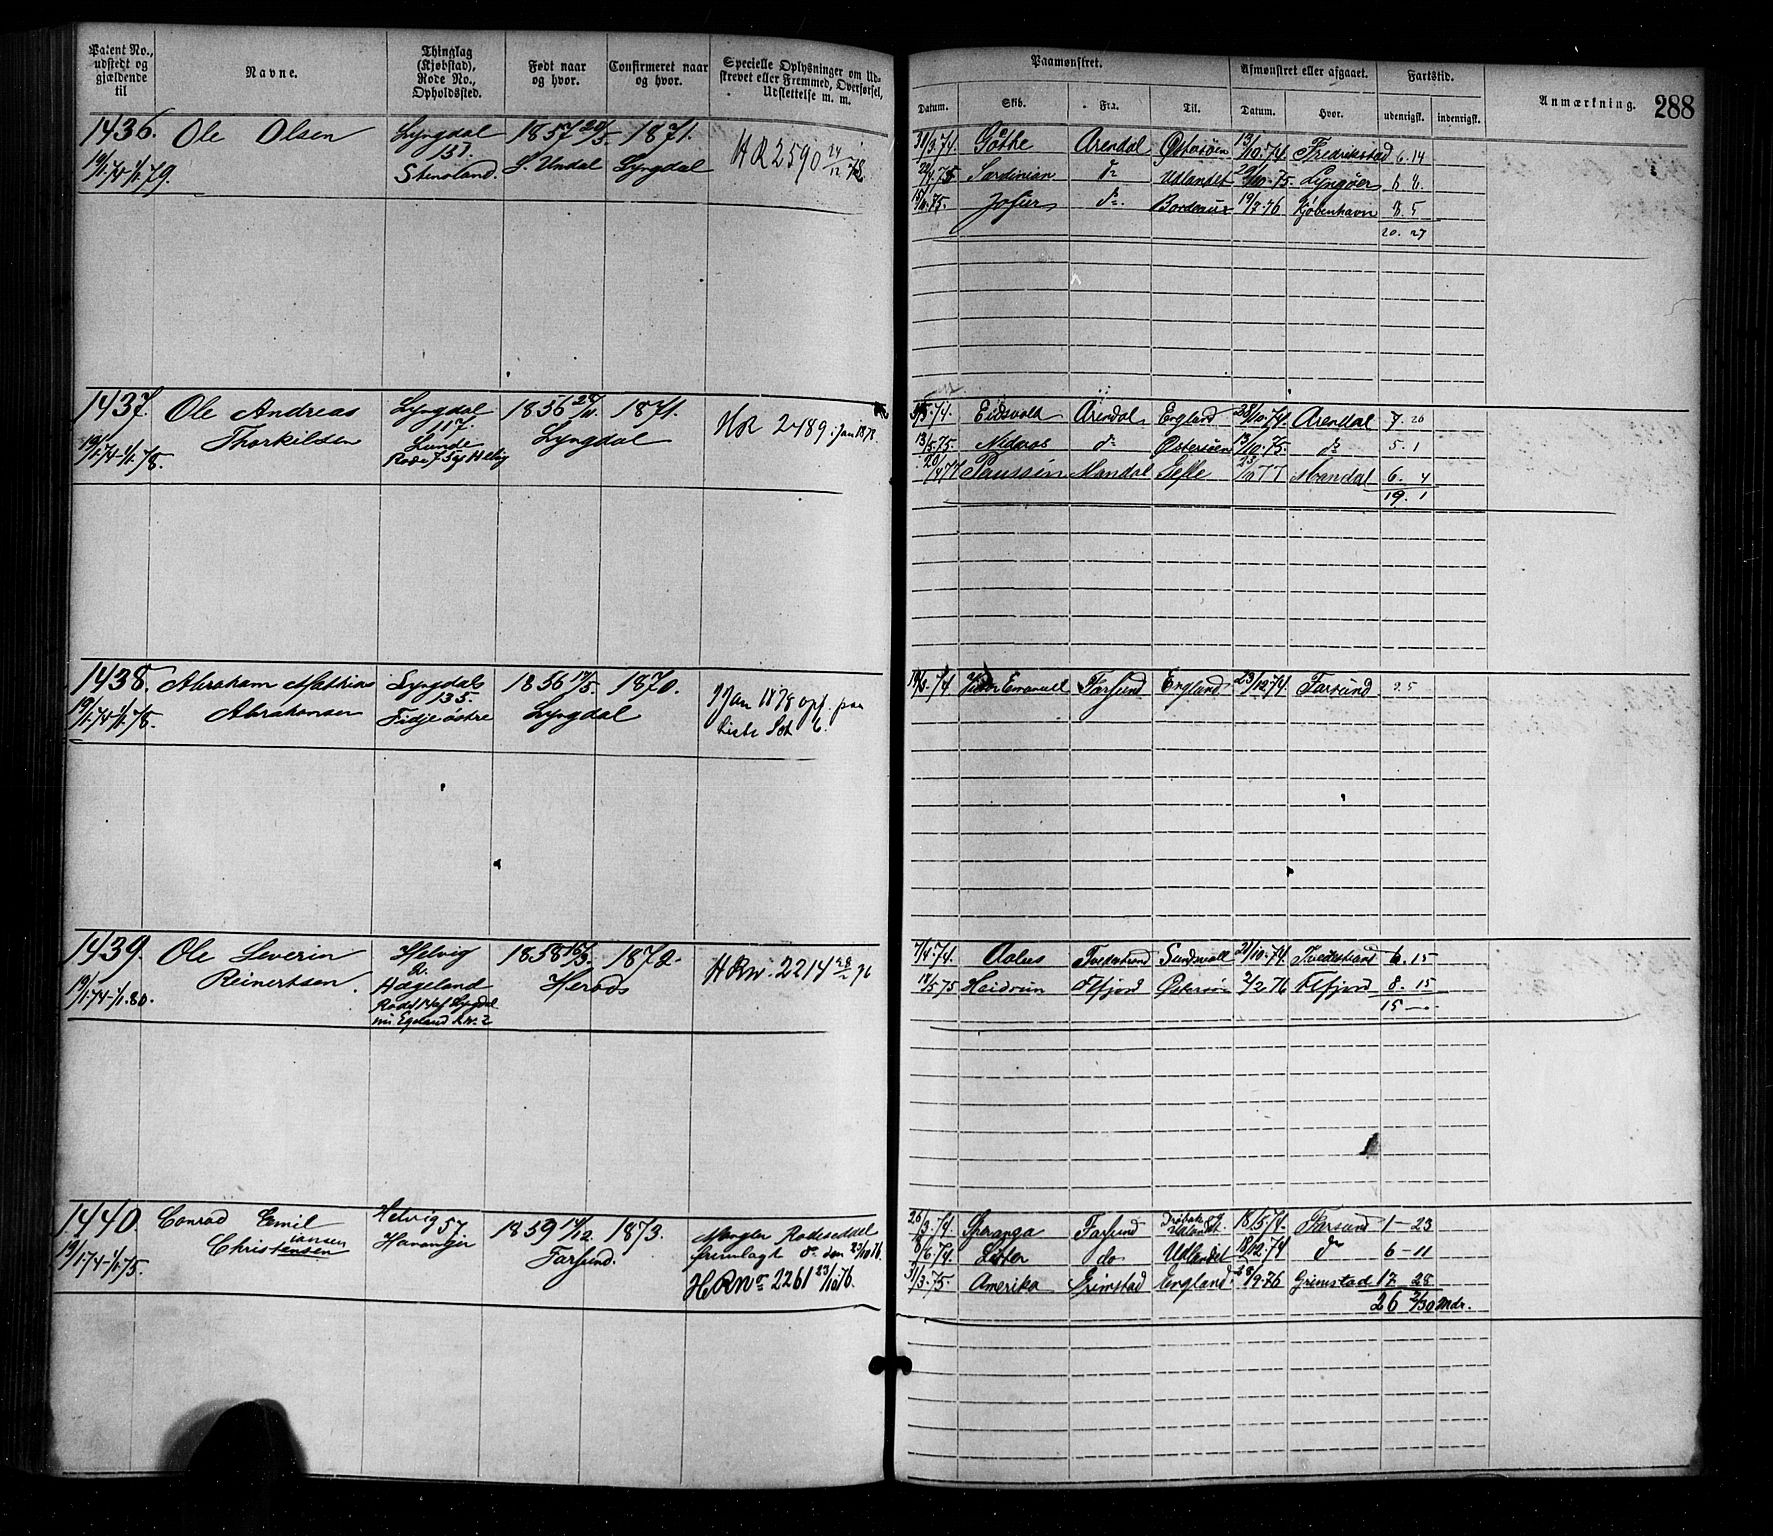 Patent No., udstedt og gjældende til
Navne.
Thinglag (Kjøbstad), Rode No., Opholdssted.
Født naar og hvor.
Confirmeret naar og hvor.
Specielle Oplysninger om Udskrevet eller Fremmed, Overførsel, Udslettelse m. m.
Paamønstret.
Afmønstret eller afgaaet.
Fartstid.
Anmærkning.
288
Datum.
Skib.
Fra.
Til.
Datum.
Hvor.
udenrigsk.
indenrigsk.
1436. Ole Olsen Lyngdal 1857 20/5 1871.
19/1.74-1/1.79. 151 Stensland. S. Undal Lyngdal HR 2590 24/12 78
31/3.74. Gøthe Arendal Østersøen 13/10.74. Fredrikstad 6.14
Sardinian do Udlandet 29/10.75. Lyngøer 6 8.
Bordeaux 19/7.76 Kjøbenhavn 8.5
20. 27
1437. Ole Andreas Lyngdal 1856 24/11. 1871.
Thorkildsen 117. Lyngdal HR 2489 Jan 1878.
19/1.74-1/1.78. Lunde
Rode 75 af Helvig
Eidsvold Arendal England 28/10.74. Arendal 7. 20
13/5.75. Nidaros do Østersøen 13/10.75. do 5.1
Mandal Gefle 77 Mandal 6. 4
19. 1
1438. Abraham Mathias Lyngdals 1856 12/5. 1870.
Abrahamsen 135. Lyngdal Jan 1878 opf. paa
19/1.74-1/1.78. Fidje østre Liste Set 6.
Emanuell Farsund England 23/12.74. Farsund
1439. Ole Severin Helvig 1858 16/3. 1872.
Reinertsen. 2. Herads HR No. 2214 28/2 76
19/1.74-1/1.80. Hægeland
Rode 14 af Lyngdal
nu Egeland R. No. 2
7/4.74. Aolus Tvedestrand Sundsvall 21/10.74. Tvedestrand 6.15
Heidrun Østersøn 2/2.76 8. 15
15 —
1440. Conrad Emil Helvig 57 1859 14/12. 1873.
Christensen iansen Farsund.
19/1.74-1/1.75. Mangler Rodeseddel
fremlagt do den 23/10 76.
HR No 2261 23/10 76.
26/3.74. Speranga Farsund Drøbak og Udlandet. 18/5.74. Farsund 1 — 23
8/6.74. Lister do Udlandet 18/12.74 do 6 — 11
31/3.75 Amerika Grimstad England. 28/9.76 Grimstad 17 28
26 2/30 Mdr.